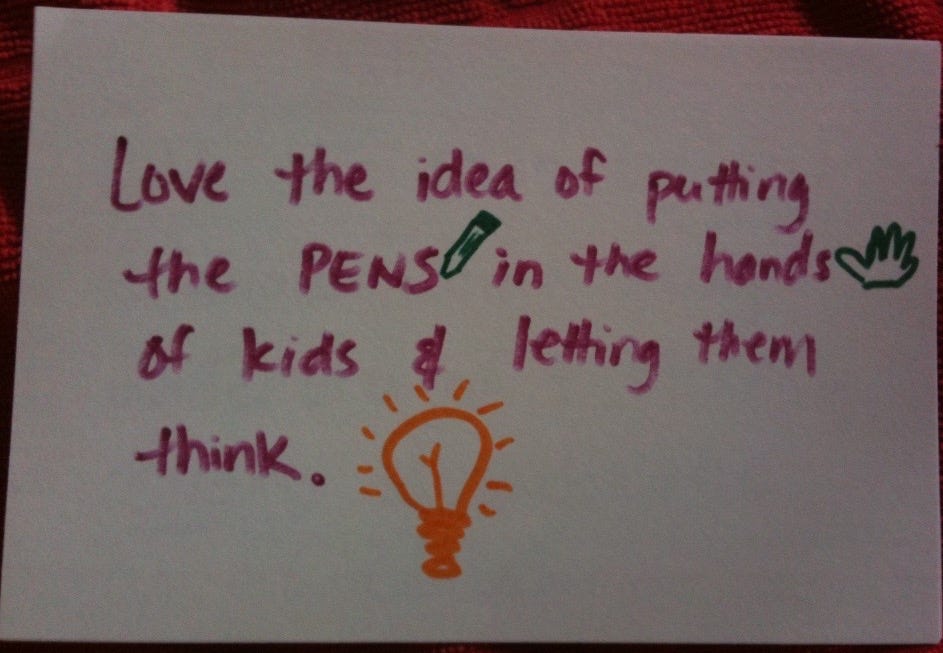 Love the idea of putting
the PENS in the hands
of kids & letting them
think.